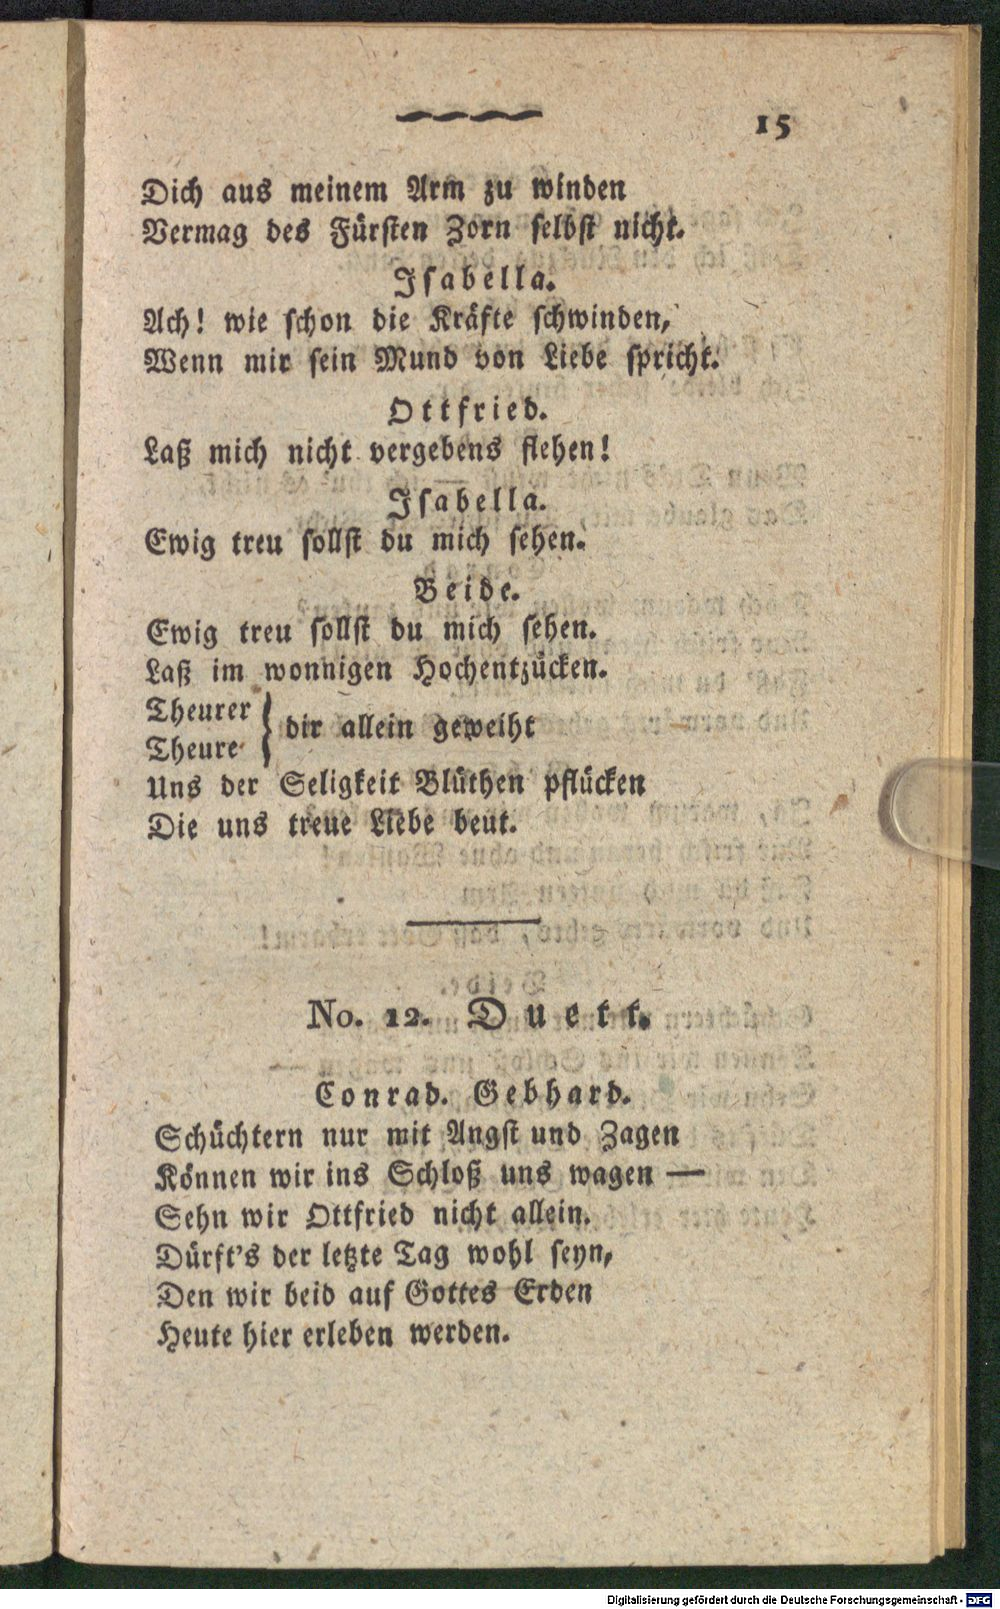 15
Dich aus meinem Arm zu winden
Vermag des Fürsten Zorn selbst nicht.
Isabella.
Ach! wie schon die Kräfte schwinden,
Wenn mir sein Mund von Liebe spricht.
Ottfried.
Laß mich nicht vergebens flehen!
Isabella.
Ewig treu sollst du mich sehen.
Beide.
Ewig treu sollst du mich sehen.
Laß im wonnigen Hochentzücken.
Theurer
Theure
} dir allein geweiht
Uns der Seligkeit Blüthen pflücken
Die uns treue Liebe beut.
No. 12. Duett.
Conrad. Gebhard.
Schüchtern nur mit Angst und Zagen
Können wir ins Schloß uns wagen —
Sehn wir Ottfried nicht allein.
Dürft's der letzte Tag wohl seyn,
Den wir beid auf Gottes Erden
Heute hier erleben werden.
Digitalisierung gefördert durch die Deutsche Forschungsgemeinschaft - DFG